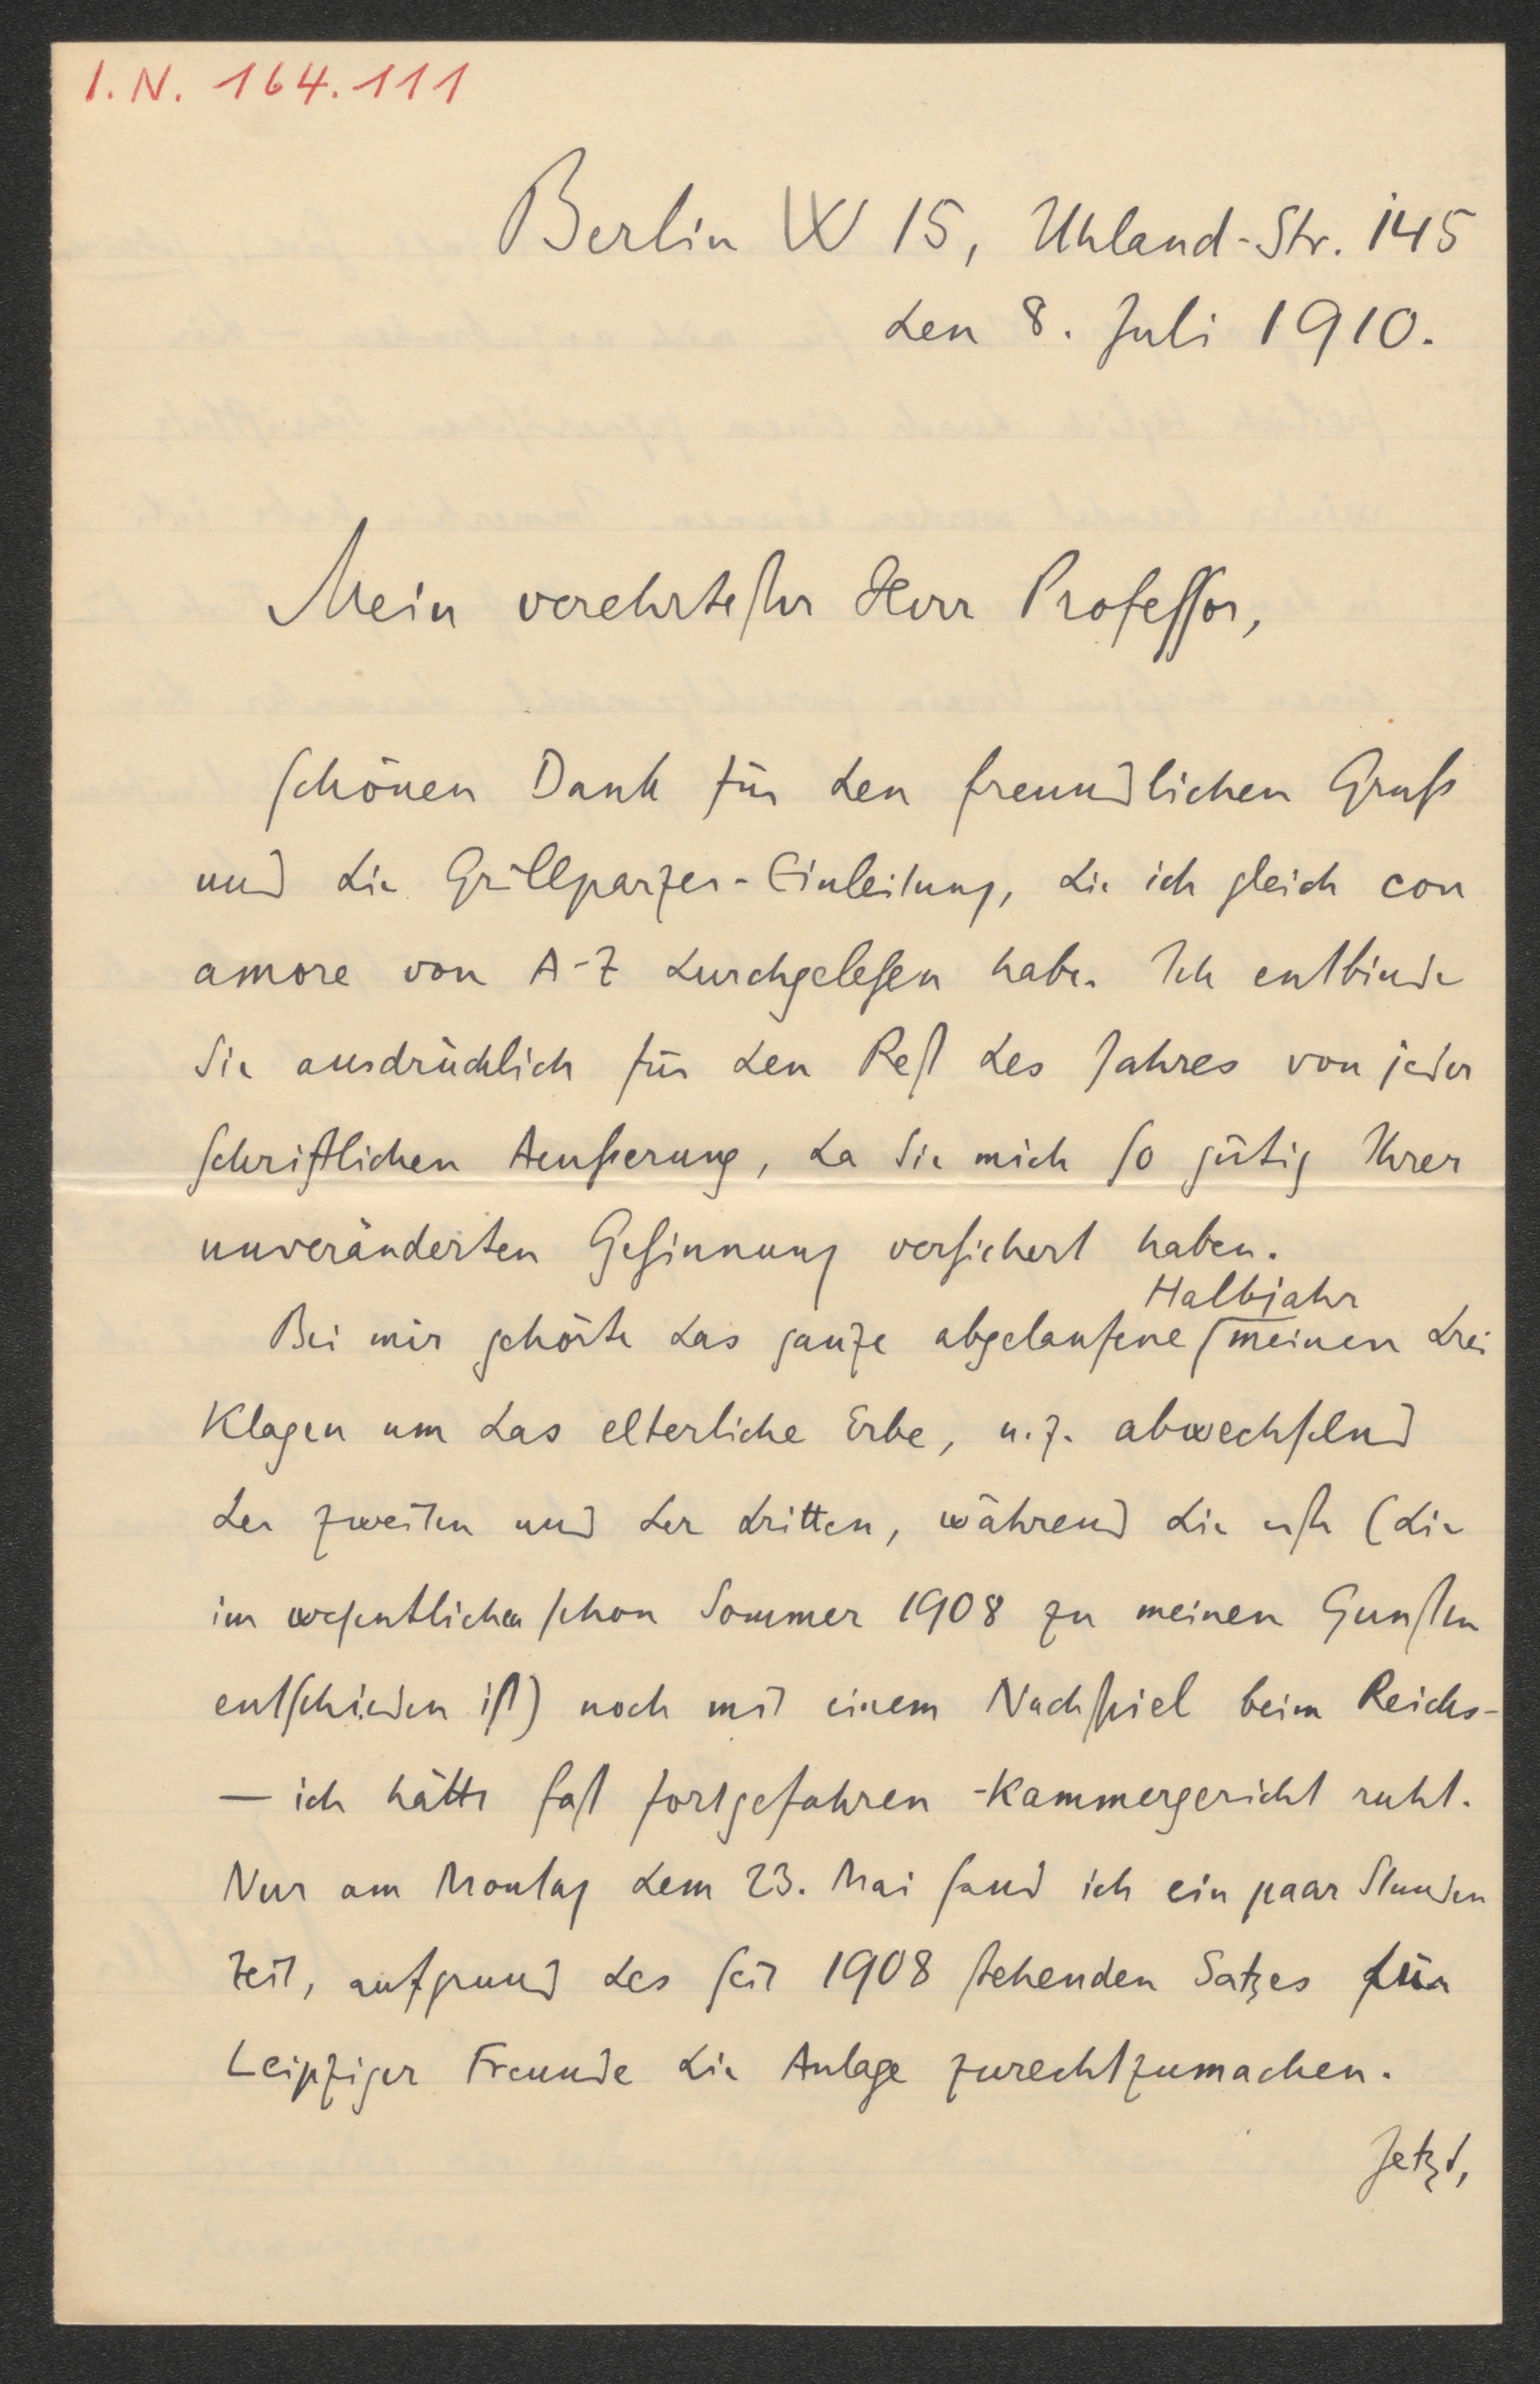 I.N. 164.111
Berlin W 15, Uhland-Str. 145
den 8. Juli 1910.
Mein verehrtester Herr Professor,
schönen Dank für den freundlichen Gruß
und die Grillparzer-Einleitung, die ich gleich con
amore von A-Z durchgelesen habe. Ich entbinde
Sie ausdrücklich für den Rest des Jahres von jeder
schriftlichen Aeußerung, da Sie mich so gütig Ihrer
unveränderten Gesinnung versichert haben.
Halbjahr
Bei mir gehörte das ganze abgelaufene meinen drei
Klagen um das elterliche Erbe, u.z. abwechselnd
der zweiten und der dritten, während die erste (die
im wesentlichen schon Sommer 1908 zu meinen Gunsten
entschieden ist) noch mit einem Nachspiel beim Reichs-
— ich hätte fast fortgefahren -Kammergericht ruht.
Nur am Montag dem 23. Mai fand ich ein paar Stunden
Zeit, aufgrund des seit 1908 stehenden Satzes für
Leipziger Freunde die Anlage zurechtzumachen.
Jetzt,